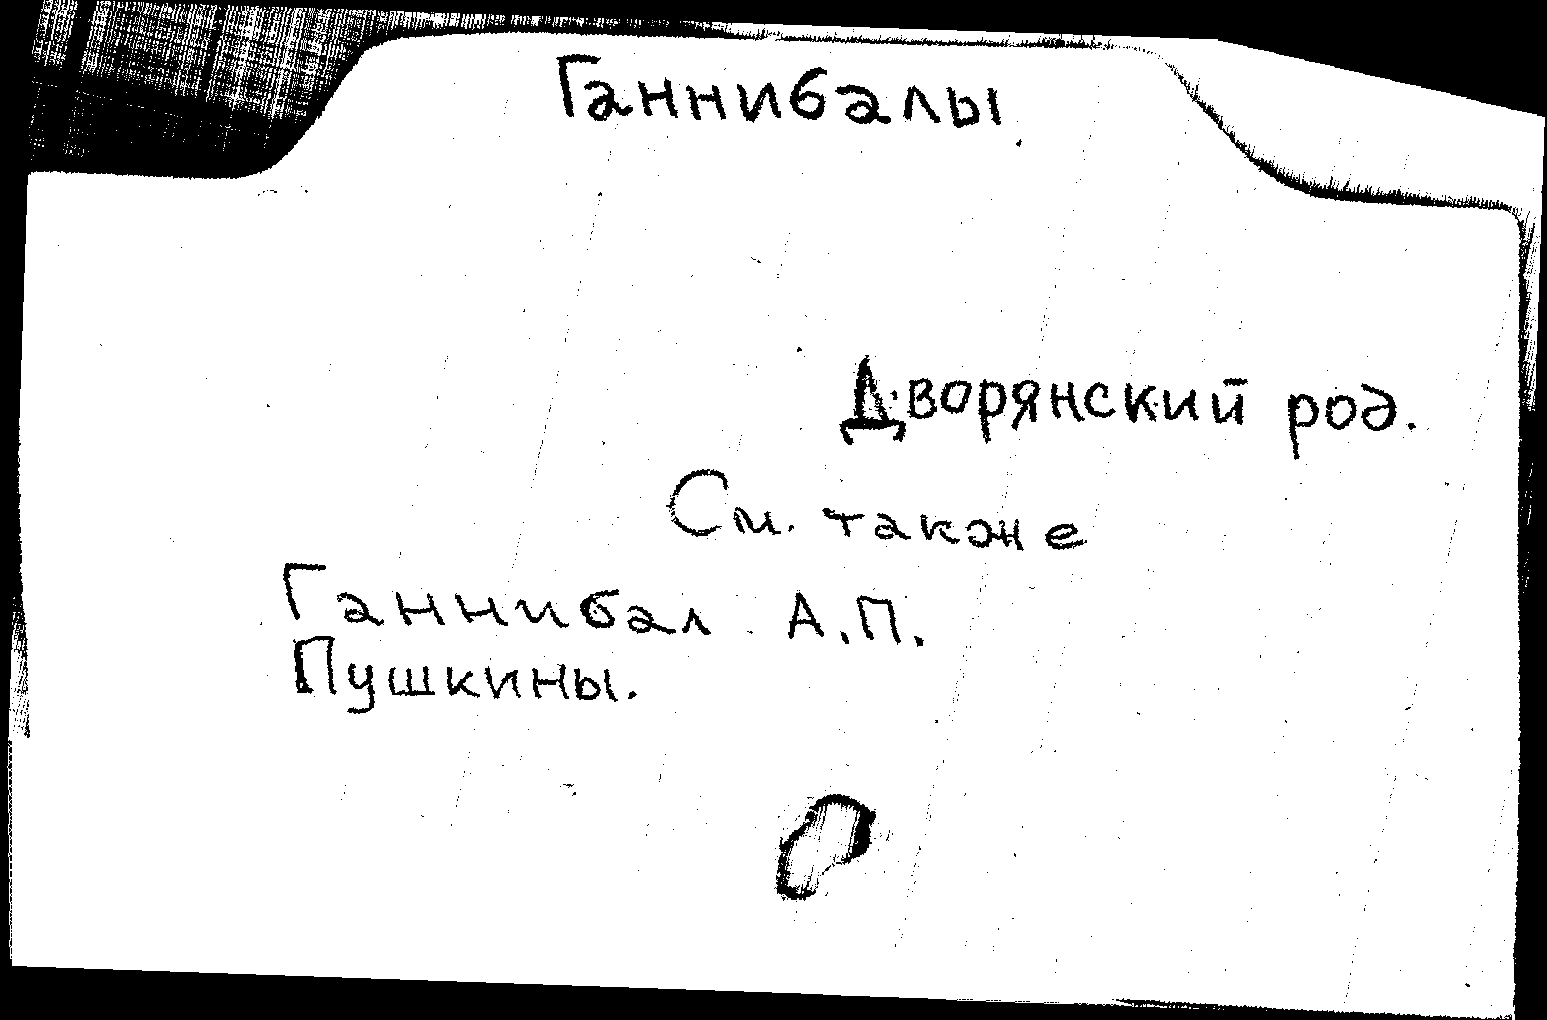 Ганнибалы
Дворянский род.
См. также
Ганнибал А.П.
Пушкины.